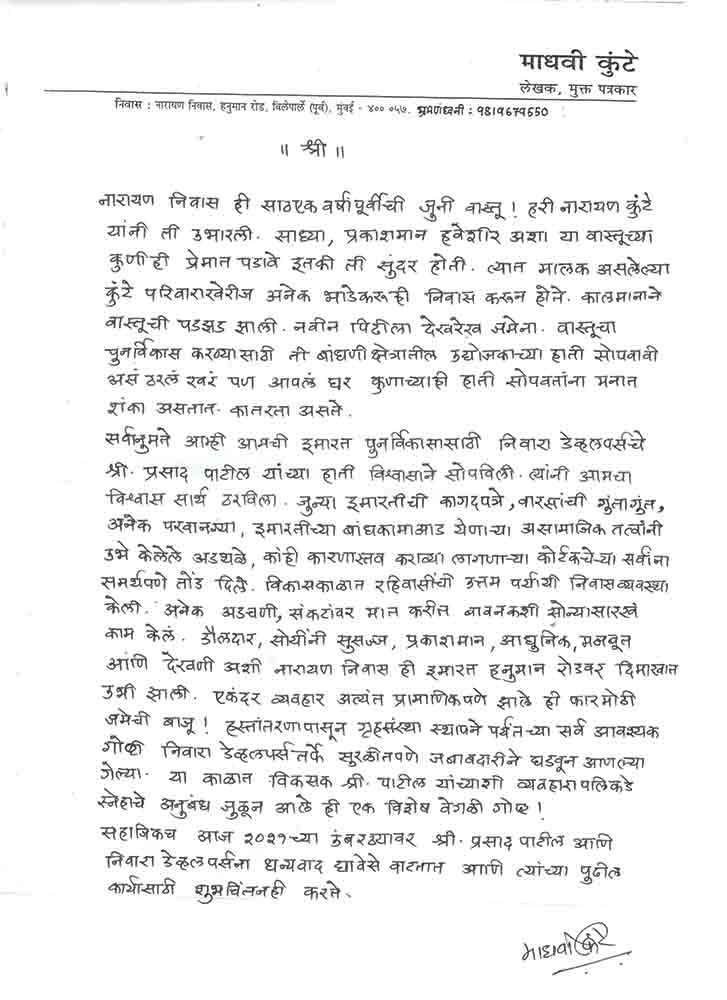 माधवी कुंटे
लेखक, मुक्त पत्रकार
निवास : नारायण निवास, हनुमान रोड, विलेपार्ले (पूर्व), मुंबई - ४०० ०५७. भ्रमणध्वनी : 9819679550
॥ श्री ॥
नारायण निवास ही साठएक वर्षांपूर्वीची जुनी वास्तू ! हरी नारायण कुंटे
यांनी ती उभारली. साध्या, प्रकाशमान हवेशीर अशा या वास्तूच्या
कुणीही प्रेमात पडावे इतकी ती सुंदर होती. त्यात मालक असलेल्या
कुंटे परिवाराखेरीज अनेक भाडेकरूही निवास करून होते. कालमानाने
वास्तूची पडझड झाली. नवीन पिढीला देखरेख जमेना. वास्तूचा
पुनर्विकास करण्यासाठी ती बांधणीक्षेत्रातील उद्योजकाच्या हाती सोपवावी
असं ठरलं खरं पण आपलं घर कुणाच्याही हाती सोपवतांना मनात
शंका असतात. कातरता असते.
सर्वानुमते आम्ही आमची इमारत पुनर्विकासासाठी निवारा डेव्हलपर्सचे
श्री. प्रसाद पाटील यांच्या हाती विश्वासाने सोपविली. त्यांनी आमचा
विश्वास सार्थ ठरविला. जुन्या इमारतीची कागदपत्रे, वारसांची गुंतागुंत,
अनेक परवानग्या, इमारतीच्या बांधकामाआड येणाऱ्या असामाजिक तत्वांनी
उभे केलेले अडथळे, कांही कारणास्तव कराव्या लागणाऱ्या कोर्टकचेऱ्या सर्वांना
समर्थपणे तोंड दिले. विकासकाळात रहिवासींची उत्तम पर्यायी निवासव्यवस्था
केली. अनेक अडचणी, संकटांवर मात करीत बावनकशी सोन्यासारखे
काम केलं. डौलदार, सोयींनी सुसज्ज, प्रकाशमान, आधुनिक, मजबूत
आणि देखणी अशी नारायण निवास ही इमारत हनुमान रोडवर दिमाखात
उभी झाली. एकंदर व्यवहार अत्यंत प्रामाणिकपणे झाले ही फार मोठी
जमेची बाजू ! हस्तांतरणापासून गृहसंस्था स्थापने पर्यंतच्या सर्व आवश्यक
गोष्टी निवारा डेव्हलपर्सतर्फे सुरळीतपणे जबाबदारीने घडवून आणल्या
गेल्या. या काळात विकासक श्री. पाटील यांच्याशी व्यवहारापलिकडे
स्नेहाचे अनुबंध जुळून आले ही एक विशेष वेगळी गोष्ट !
सहाजिकच आज २०२१च्या उंबरठ्यावर श्री. प्रसाद पाटील आणि
निवारा डेव्हलपर्सना धन्यवाद द्यावेसे वाटतात आणि त्यांच्या पुढील
कार्यासाठी शुभचिंतनही करते.
माधवी कुंटे